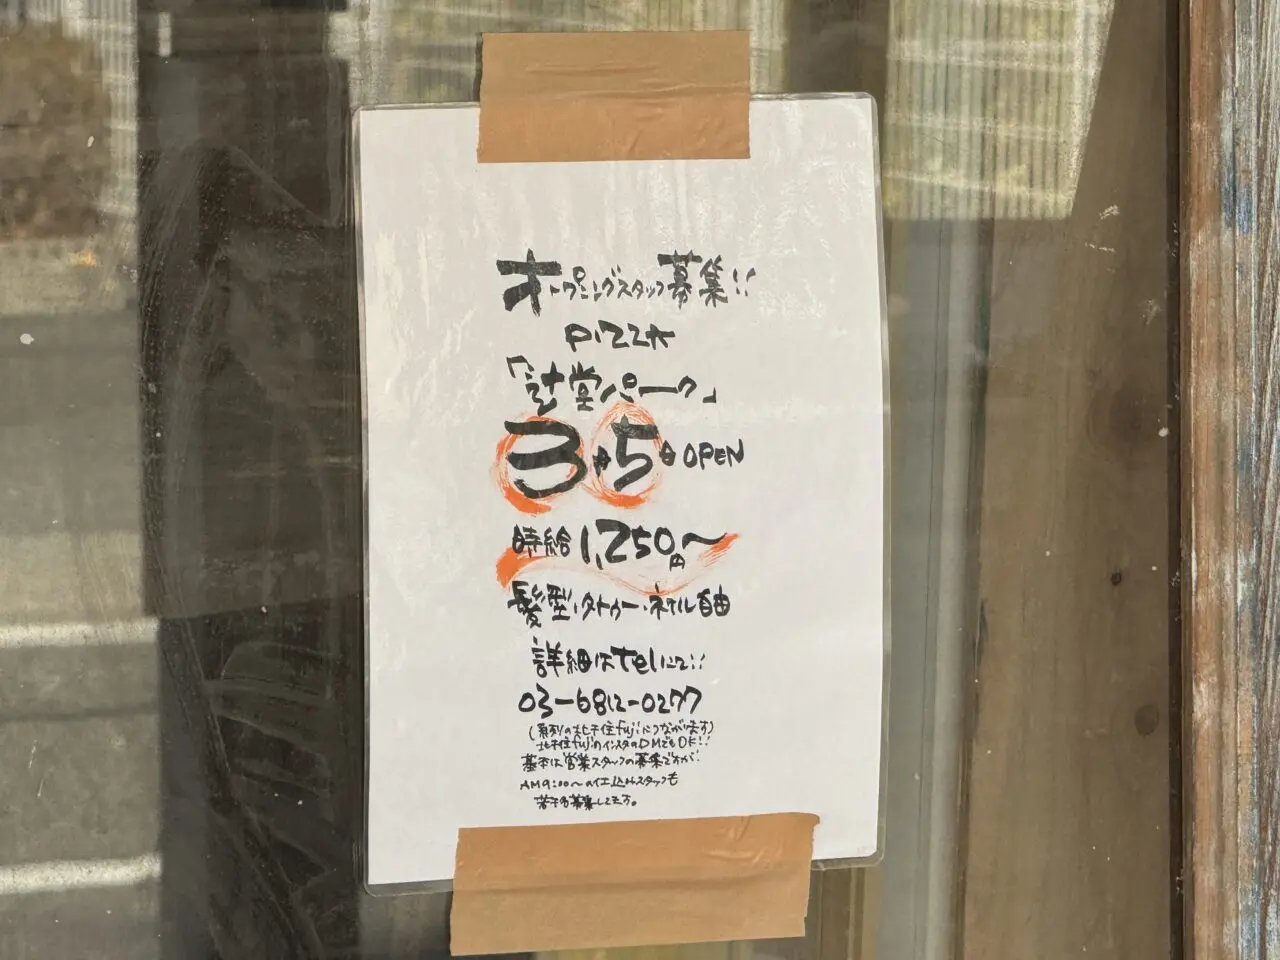 オープニングスタッフ募集!!
PIZZA
堂パーク」
3月5日OPEN
時給1,250円〜
髪型・タトゥー・ネイル自由
詳細はtelにて!!
03-6812-0277
(系列の北千住fujiにつながります)
北千住fujiのインスタのDMでもOK!!
基本は営業スタッフの募集ですが!
AM9:00〜の仕込みスタッフも
若干名募集してます。